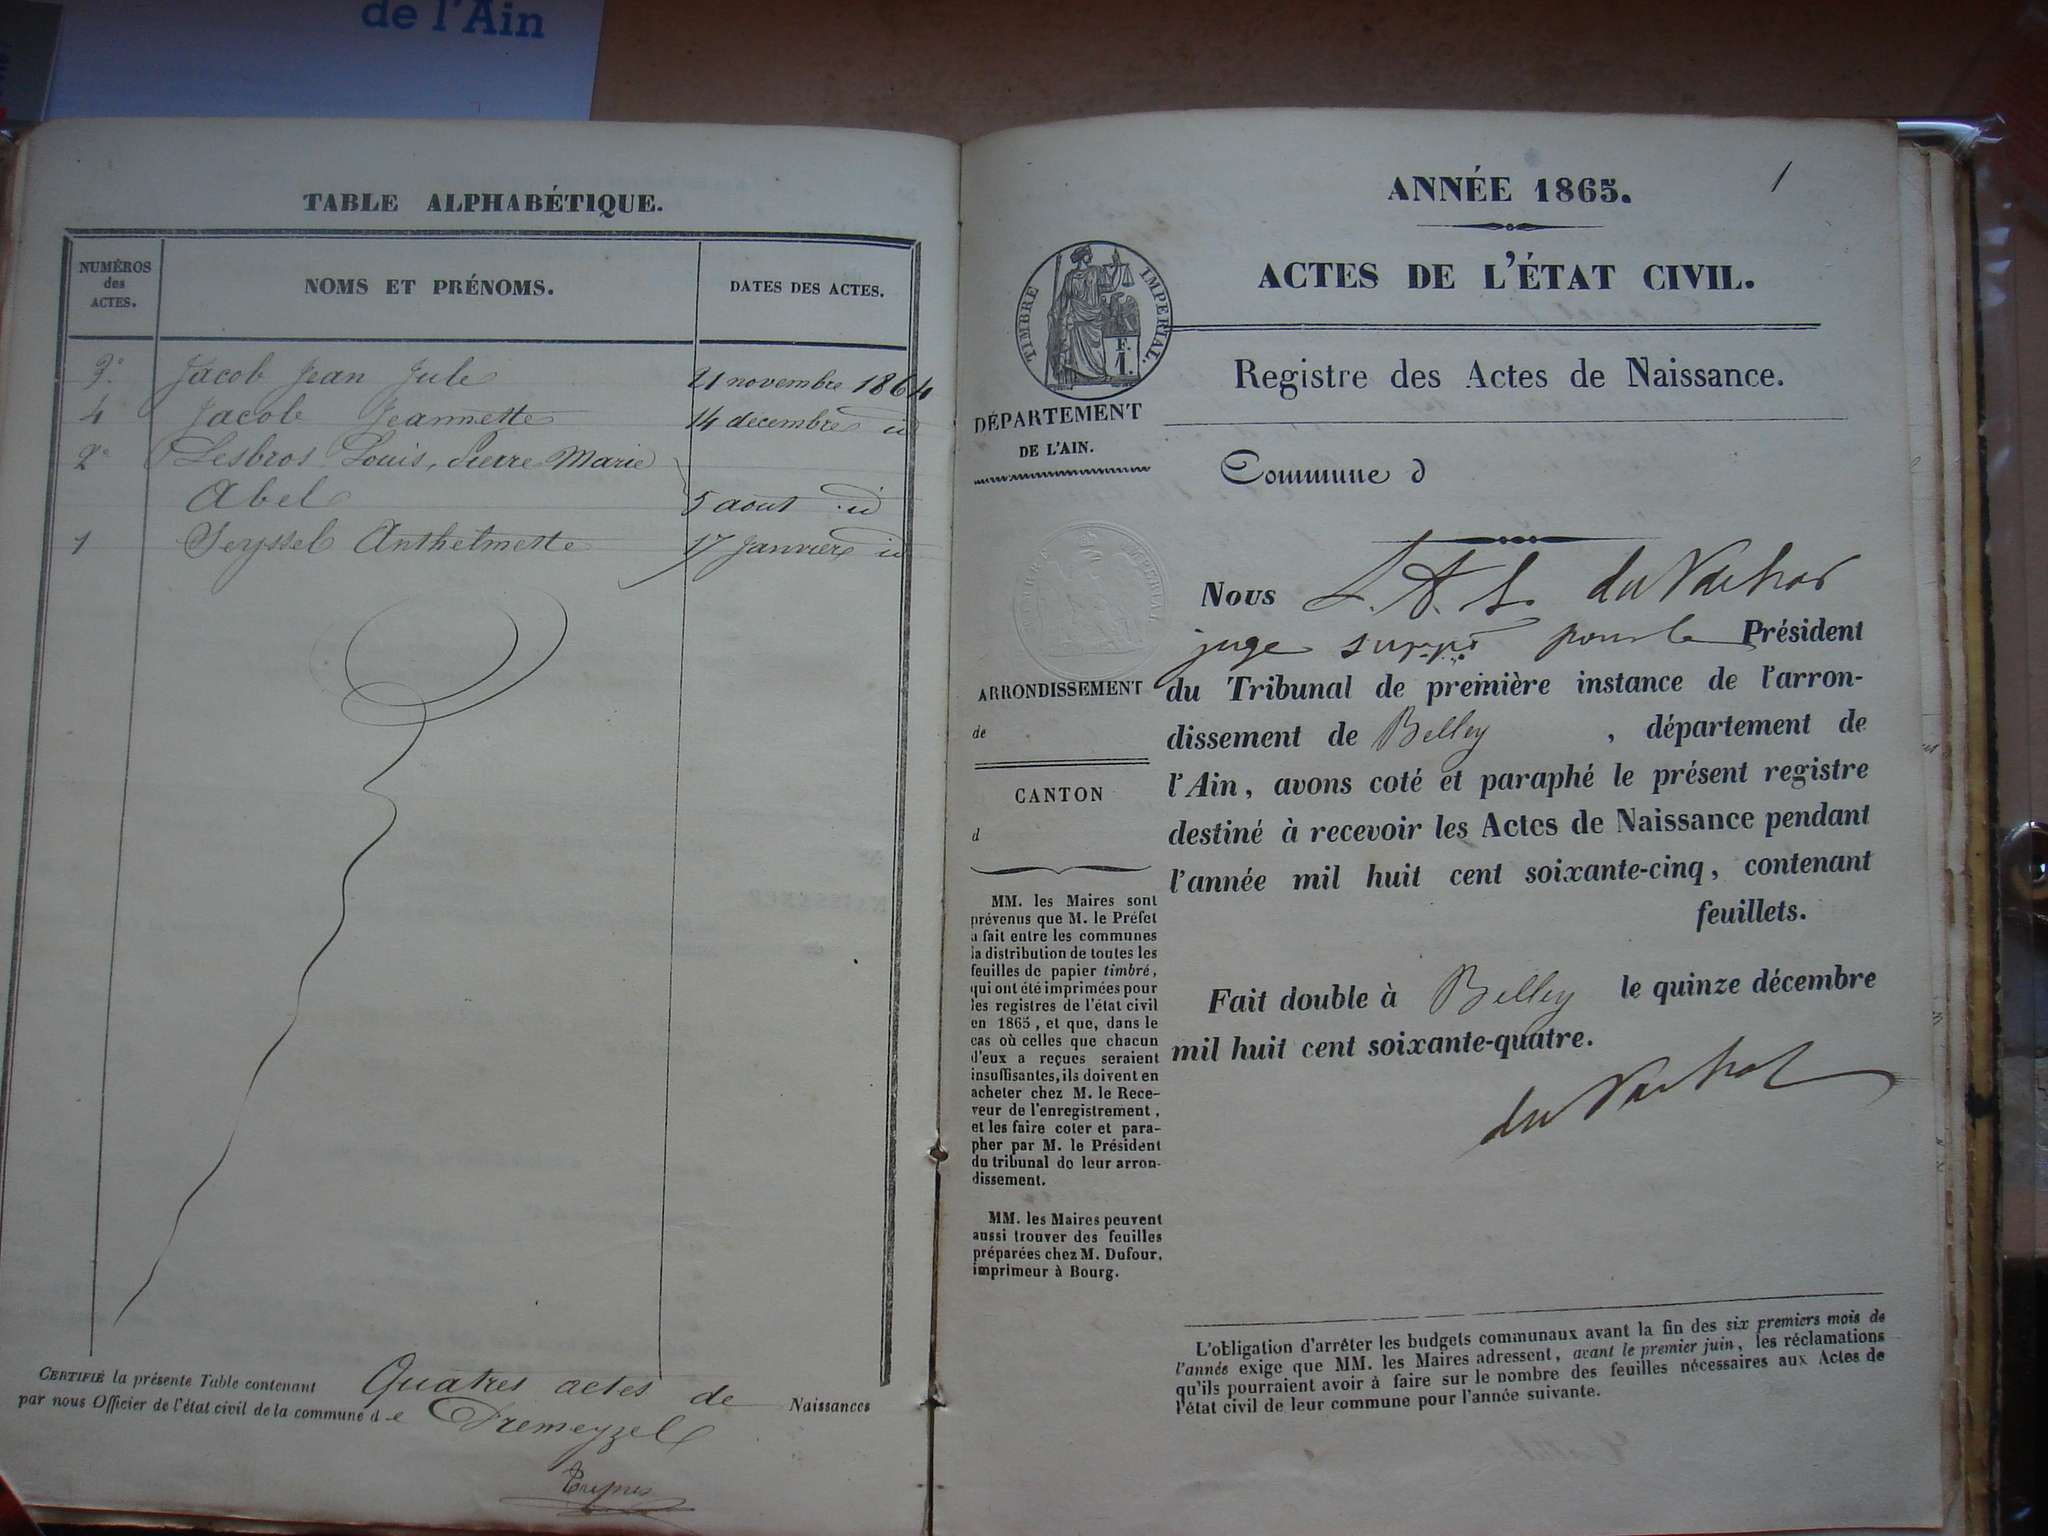 de l'Ain
TABLE ALPHABÉTIQUE.
NUMÉROS
des
ACTES.
NOMS ET PRÉNOMS.
DATES DES ACTES.
3° Jacob Jean Jule 21 novembre 1864
4 Jacob Jeannette 14 décembre id
2° Lesbros Louis, Pierre Marie
Abel 5 aout id
1 Seyssel Anthelmette 17 Janvier id
CERTIFIÉ la présente Table contenant Quatres actes de Naissances
par nous Officier de l'état civil de la commune d e Premeyzel
1
ANNÉE 1865.
ACTES DE L'ÉTAT CIVIL.
TIMBRE IMPERIAL.
F.
1.
Registre des Actes de Naissance.
DÉPARTEMENT
DE L'AIN.
Commune d
TIMBRE IMPERIAL
ARRONDISSEMENT
de
CANTON
d
MM. les Maires sont
prévenus que M. le Préfet
a fait entre les communes
la distribution de toutes les
feuilles de papier timbré,
qui ont été imprimées pour
les registres de l'état civil
en 1865, et que, dans le
cas où celles que chacun
d'eux a reçues seraient
insuffisantes, ils doivent en
acheter chez M. le Rece-
veur de l'enregistrement,
et les faire coter et para-
pher par M. le Président
du tribunal de leur arron-
dissement.
MM. les Maires peuvent
aussi trouver des feuilles
préparées chez M. Dufour,
imprimeur à Bourg.
Nous
juge supp pour le Président
du Tribunal de première instance de l'arron-
dissement de Belley , département de
l'Ain, avons coté et paraphé le présent registre
destiné à recevoir les Actes de Naissance pendant
l'année mil huit cent soixante-cinq, contenant
feuillets.
Fait double à Belley le quinze décembre
mil huit cent soixante-quatre.
L'obligation d'arrêter les budgets communaux avant la fin des six premiers mois de
l'année exige que MM. les Maires adressent, avant le premier juin, les réclamations
qu'ils pourraient avoir à faire sur le nombre des feuilles nécessaires aux Actes de
l'état civil de leur commune pour l'année suivante.